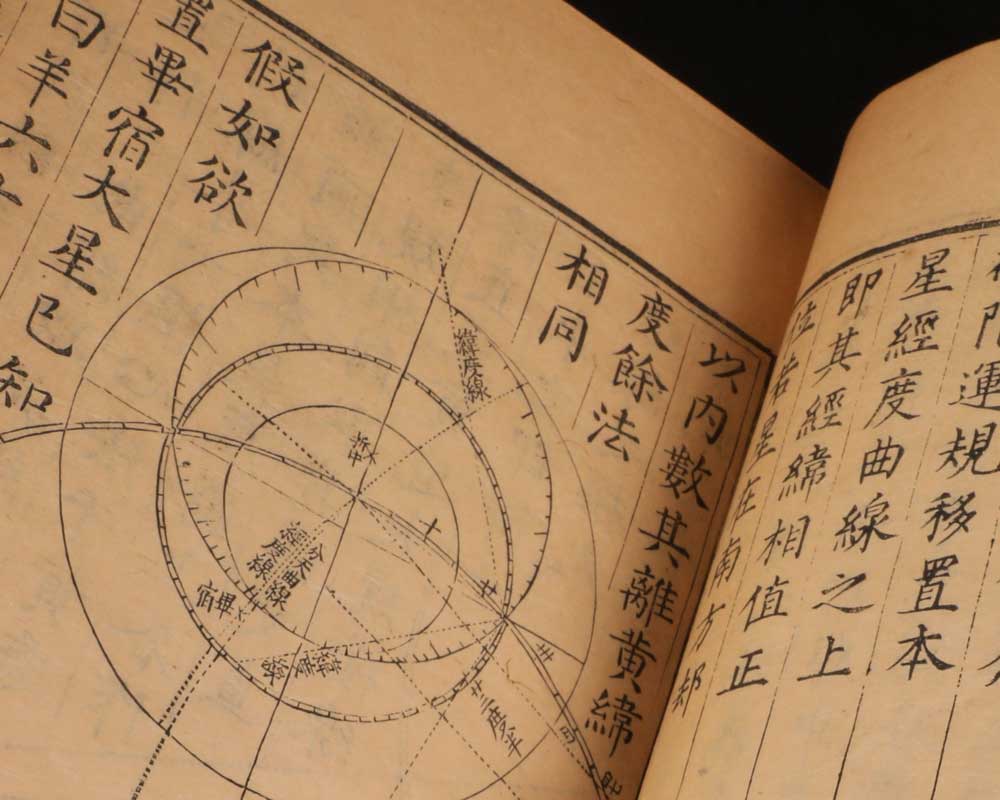 星經度曲線之上
即其經緯相值正
運規移置本
若星在南方
以內數其離黃緯
度餘法
相同
假如欲
置畢宿大星已知
曰羊六
緯度線
分天曲線
經度線
畢宿
廿三度半
十
廿